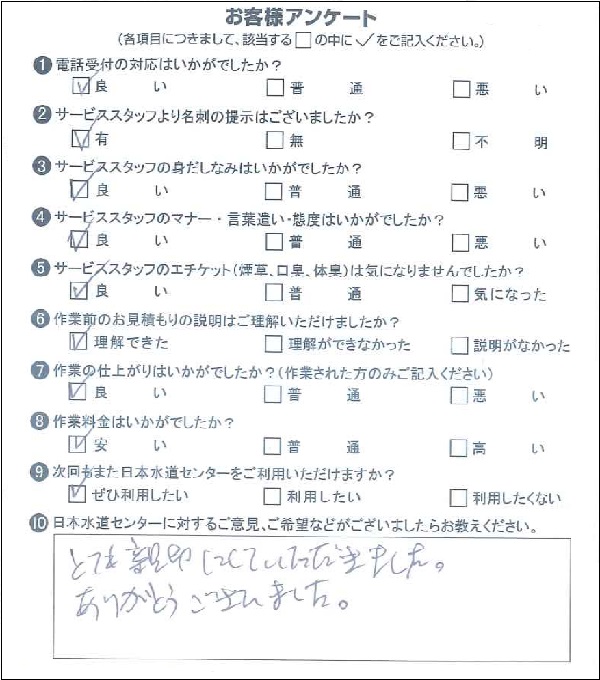 お客様アンケート
(各項目につきまして、該当する□の中に✓をご記入ください。)
❶ 電話受付の対応はいかがでしたか?
☑良い □普通 □悪い
❷ サービススタッフより名刺の提示はございましたか?
☑有 □無 □不明
❸ サービススタッフの身だしなみはいかがでしたか?
☑良い □普通 □悪い
❹ サービススタッフのマナー・言葉遣い・態度はいかがでしたか?
☑良い □普通 □悪い
❺ サービススタッフのエチケット(煙草、口臭、体臭)は気になりませんでしたか?
☑良い □普通 □気になった
❻ 作業前のお見積もりの説明はご理解いただけましたか?
☑理解できた □理解ができなかった □説明がなかった
❼ 作業の仕上がりはいかがでしたか?(作業された方のみご記入ください)
☑良い □普通 □悪い
❽ 作業料金はいかがでしたか?
☑安い □普通 □高い
❾ 次回もまた日本水道センターをご利用いただけますか?
☑ぜひ利用したい □利用したい □利用したくない
❿ 日本水道センターに対するご意見、ご希望などがございましたらお教えください。
とても親切にしていただきました。
ありがとうございました。